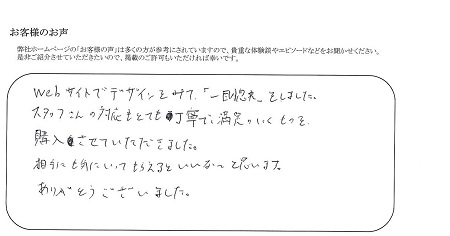 お客様のお声
弊社ホームページの「お客様の声」は多くの方が参考にされていますので、貴重な体験談やエピソードなどをお聞かせください。
是非ご紹介させていただきたいので、掲載のご許可もいただければ幸いです。
Webサイトでデザインをみて、「一目惚れ」をしました。
スタッフさんの対応もとても丁寧で、満足のいくものを
購入させていただきました。
相手にも気にいってもらえるといいなって思います。
ありがとうございました。